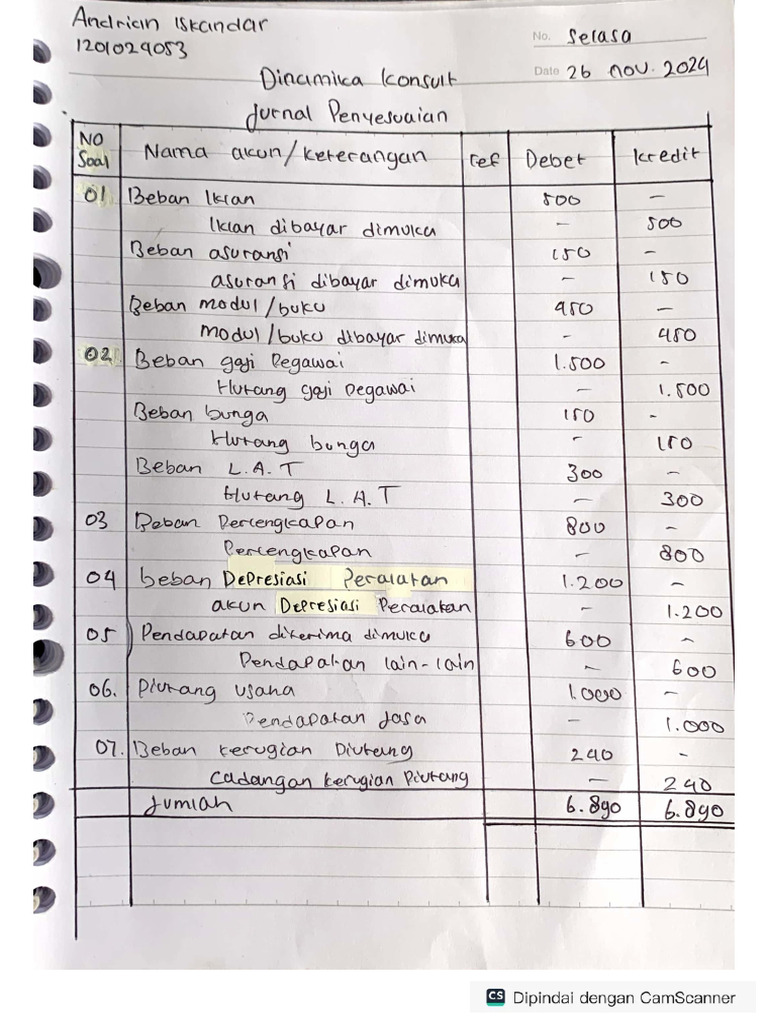 Andrian Iskandar
1201024053
No. Selasa
Date 26 nov. 2024
Dinamika Konsult
Jurnal Penyesuaian
NO Soal Nama akun/keterangan ref Debet kredit
01 Beban Iklan 500 –
Iklan dibayar dimuka – 500
Beban asuransi 150 –
asuransi dibayar dimuka – 150
Beban modul/buku 450 –
modul/buku dibayar dimuka – 450
02 Beban gaji Pegawai 1.500 –
Hutang gaji Pegawai – 1.500
Beban bunga 150 -
Hutang bunga - 150
Beban L.A.T 300 –
Hutang L.A.T – 300
03 Beban Perlengkapan 800 -
Perlengkapan – 800
04 beban Depresiasi Peralatan 1.200 –
akun Depresiasi Peralatan – 1.200
05 Pendapatan diterima dimuka 600 -
Pendapatan lain-lain – 600
06. Piutang usaha 1.000 –
Pendapatan Jasa – 1.000
07. Beban kerugian Piutang 240 -
Cadangan kerugian Piutang – 240
Jumlah 6.890 6.890
CS Dipindai dengan CamScanner